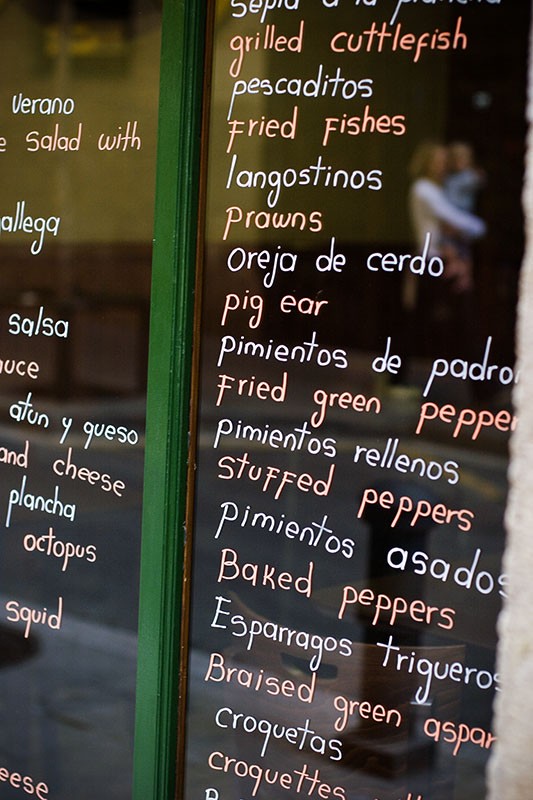 verano
salad with
salsa
atun y queso
and cheese
plancha
octopus
squid
sepia a la plancha
grilled cuttlefish
pescaditos
Fried Fishes
langostinos
prawns
oreja de cerdo
pig ear
pimientos de padro
Fried green pepper
pimientos rellenos
stuffed peppers
pimientos asados
Baked peppers
Esparragos trigueros
Braised green aspar
croquetas
croquettes